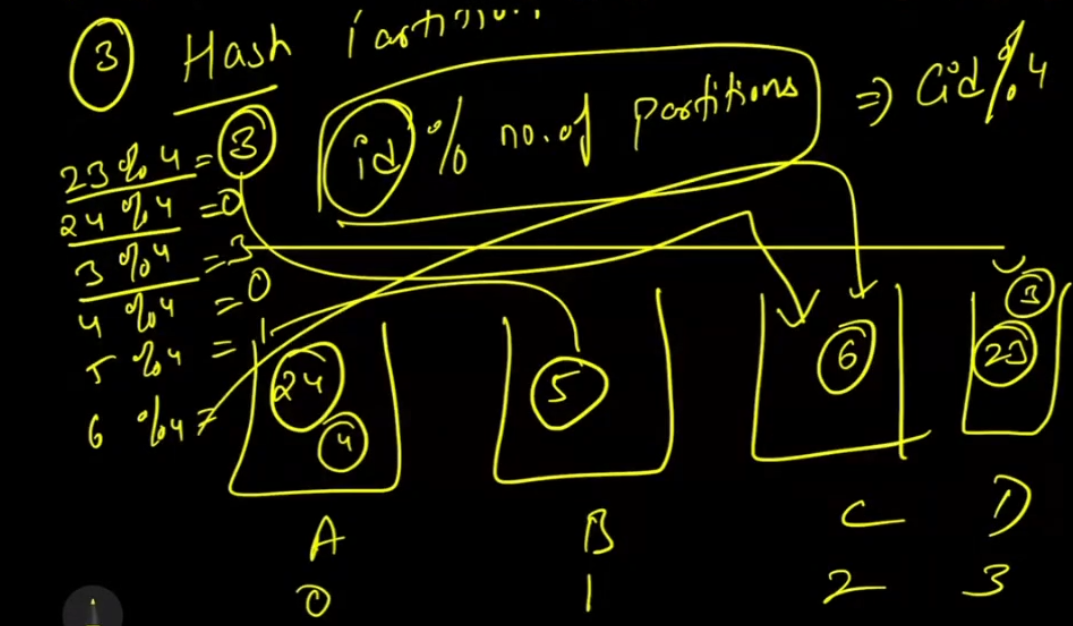 3 Hash Partition
id % no. of partitions => id % 4
23 % 4 = 3
24 % 4 = 0
3 % 4 = 3
4 % 4 = 0
5 % 4 = 1
6 % 4 =
3
24 4 5 6 23
A B C D
0 1 2 3